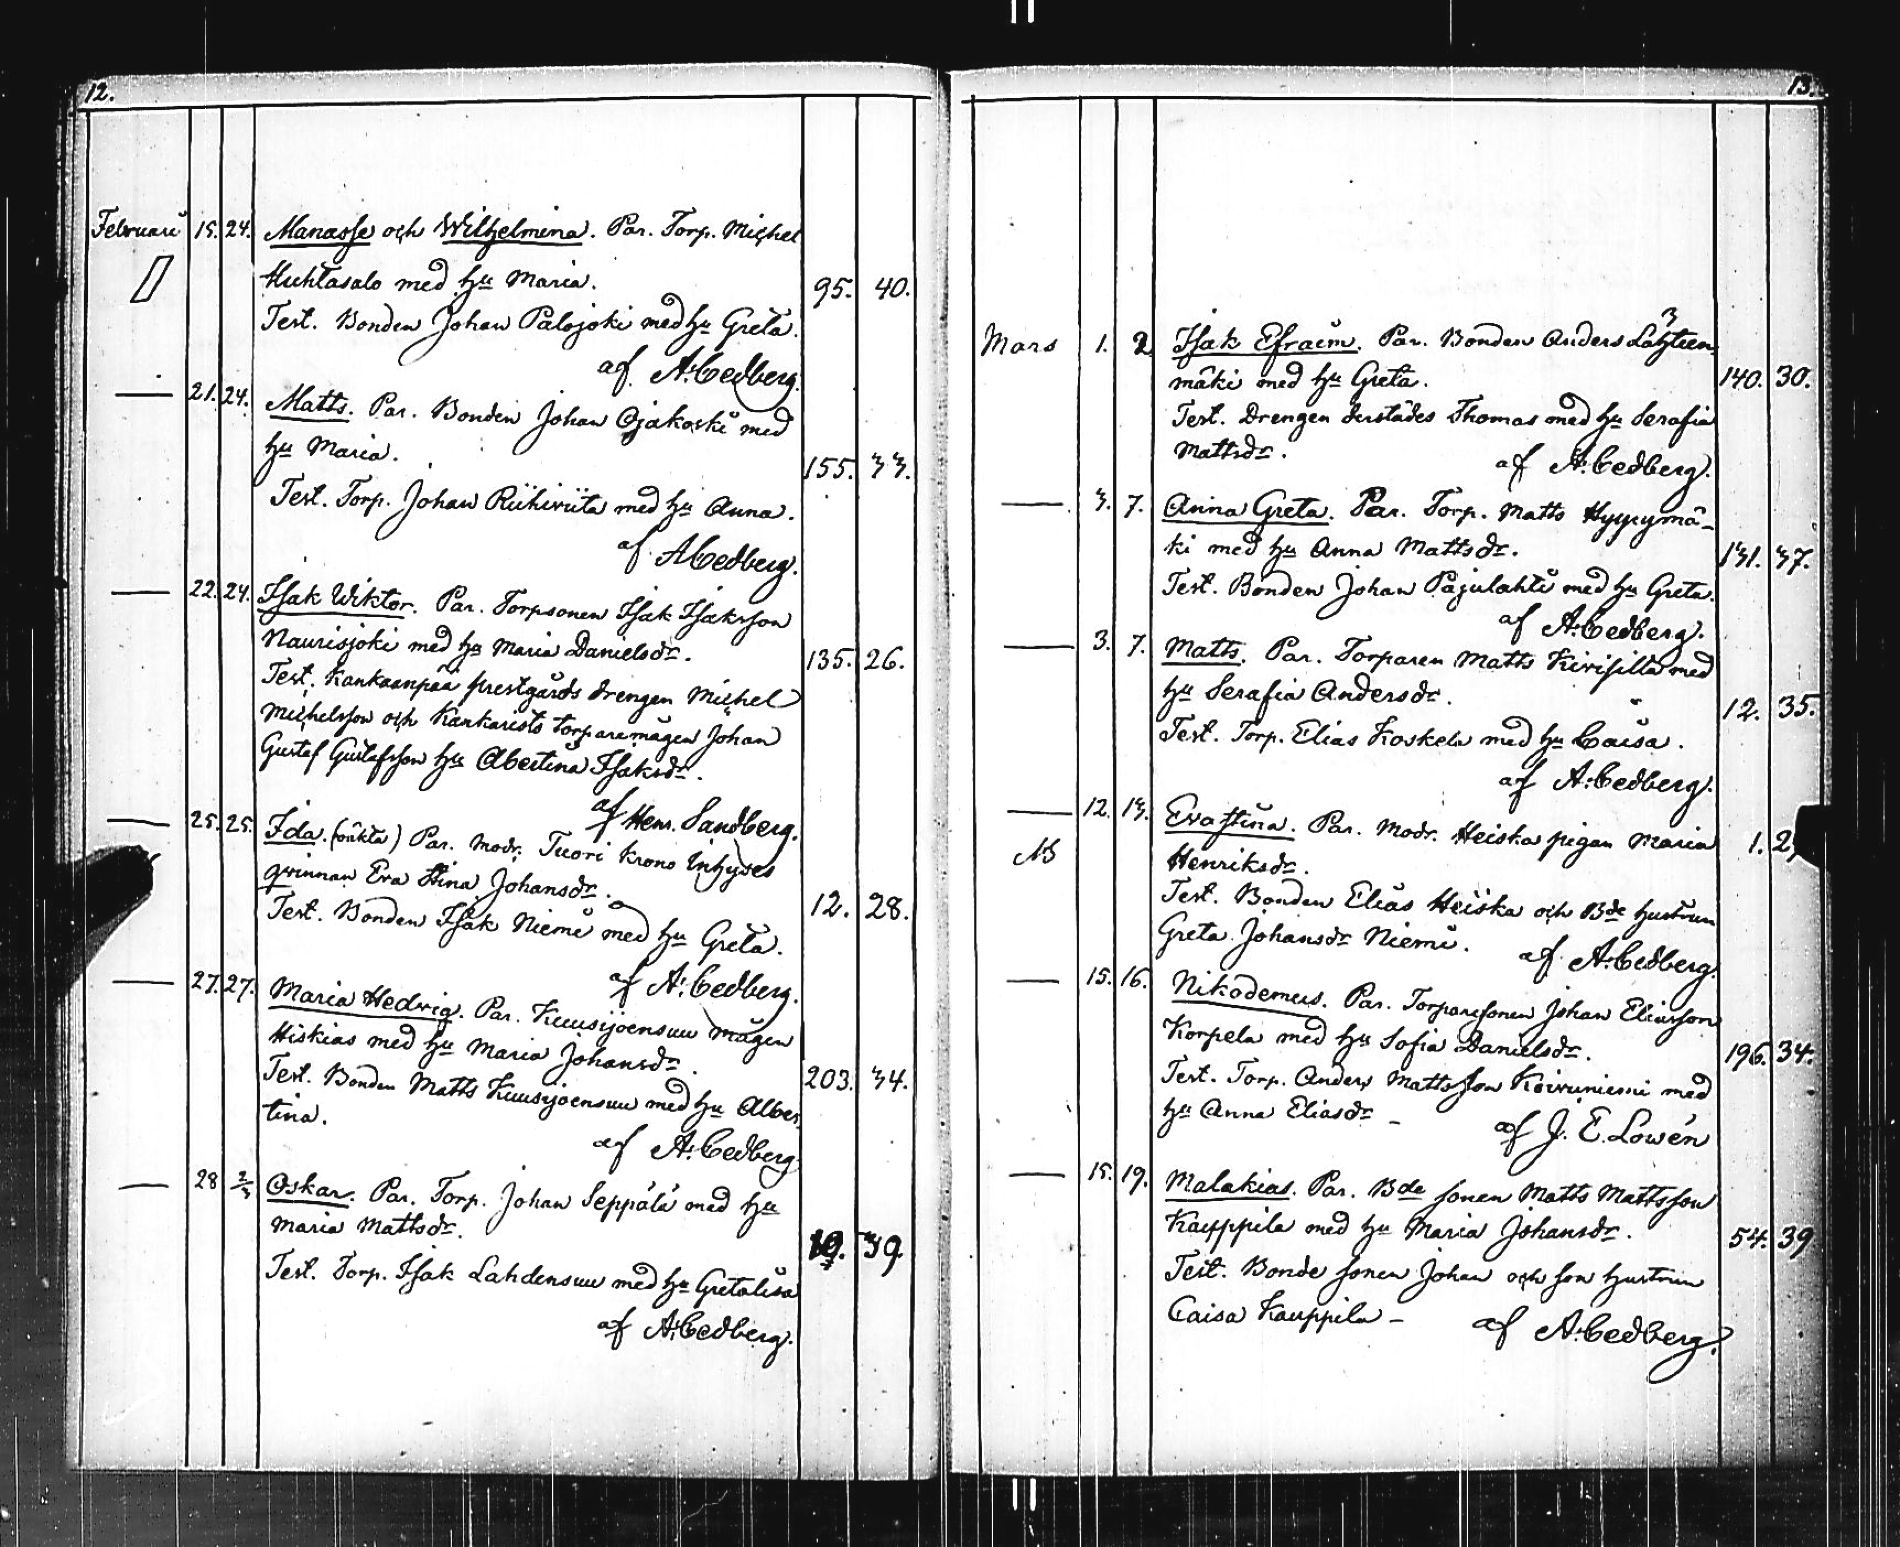 12.
Februarii 15. 24. Manasse och Wilhelmina. Par. Torp. Michel
Huhtasalo med hu Maria. 95. 40.
Test. Bonden Johan Palojoki med hu Greta.
af A. Cedberg.
— 21. 24. Matts. Par. Bonden Johan Ojakoski med
hu Maria. 155. 33.
Test. Torp. Johan Riihiviita med hu Anna.
af A Cedberg.
— 22. 24. Isak Wiktor. Par. Torpsonen Isak Isaksson
Naurisjoki med hu Maria Danielsdr. 135. 26.
Test. Kankaanpää prestgårds drengen Michel
Michelsson och Kankaristo torparemågen Johan
Gustaf Gustafsson hu Abertina Isaksdr.
af Henr. Sandberg.
— 25. 25. Ida. (oäkta) Par. Modr. Tuori Krono Inhyses
qvinnan Eva Stina Johansdr. 12. 28.
Test. Bonden Isak Niemi med hu Greta.
af A. Cedberg.
— 27. 27. Maria Hedvig. Par. Kuusijoensuu mågen
Hiskias med hu Maria Johansdr. 203. 34.
Test. Bonden Matts Kuusijoensuu med hu Alber
tina.
af A. Cedberg
— 28 2/3 Oskar. Par. Torp. Johan Seppälä med hu
Maria Mattsdr. 39
Test. Torp. Isak Lahdensuu med hu Gretalisa
af A. Cedberg.
13.
Mars 1. 2 Isak Efraim. Par. Bonden Anders Lähteen
mäki med hu Greta. 140. 30.
Test. Drengen derstädes Thomas med hu Serafia
Mattsdr. af A. Cedberg.
— 3. 7. Anna Greta. Par. Torp. Matts Hyypymä-
ki med hu Anna Mattsdr. 131. 37.
Test. Bonden Johan Pajulahti med hu Greta.
af A. Cedberg.
— 3. 7. Matts. Par. Torparen Matts Kivisilta med
hu Serafia Andersdr. 12. 35.
Test. Torp. Elias Koskela med hu Caisa.
af A. Cedberg.
— 12. 13. Evastina. Par. Modr. Heiska pigan Maria 1. 2
NB Henriksdr.
Test. Bonden Elias Heiska och Bde hustrun
Greta Johansdr Niemi. af A. Cedberg.
— 15. 16. Nikodemus. Par. Torparesonen Johan Eliasson
Korpela med hu Sofia Danielsdr. 196. 34.
Test. Torp. Anders Mattsson Koivuniemi med
hu Anna Eliasdr – af J. E. Lowén
— 15. 19. Malakias. Par. Bde sonen Matts Mattsson
Kauppila med hu Maria Johansdr. 54. 39
Test. Bonde sonen Johan och son hustrun
Caisa Kauppila – af A. Cedberg.